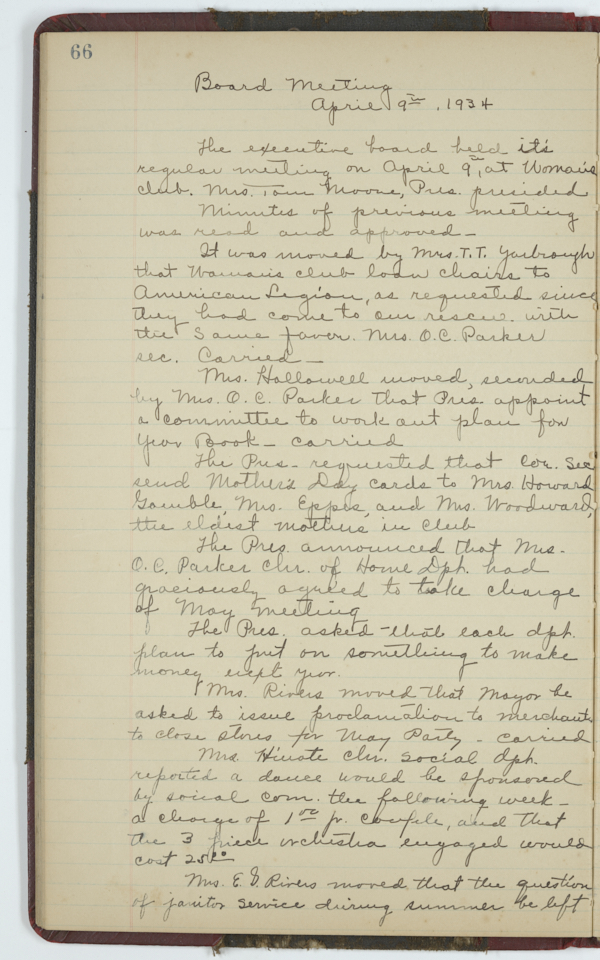 66
Board Meeting
April 9th, 1934
The executive board held it's
regular meeting on April 9th, at Woman's
club. Mrs. Tom Moore, Pres. presided
Minutes of previous meeting
was read and approved—
It was moved by Mrs. T.T. Yarbrough
that Woman's club loan chairs to
American Legion, as requested since
they had come to our rescue with
the same favor. Mrs. O.C. Parker
sec. Carried—
Mrs. Hallowell moved, seconded
by Mrs. O.C. Parker that Pres. appoint
a committee to work out plan for
Year Book— carried
The Pres. requested that Cor. Sec
send Mother's Day cards to Mrs. Howard
Gamble, Mrs. Eppes, and Mrs. Woodward,
the eldest mothers in club
The Pres. announced that Mrs.
O.C. Parker Chr. of Home Dpt. had
graciously agreed to take charge
of May meeting
The Pres. asked that each dpt.
plan to put on something to make
money next year.
Mrs. Rivers moved that Mayor be
asked to issue proclamation to merchants
to close stores for May Party— carried
Mrs. chr. social dpt.
reported a dance would be sponsored
by social com. the following week—
a charge of 1.00 pr. couple, and that
the 3 piece orchestra engaged would
cost
Mrs. E. Rivers moved that the question
of janitor service during summer be left